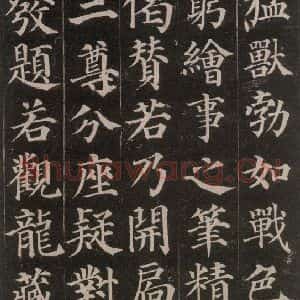 猛獸勃如戰色
窮繪事之筆精
偈贊若乃開扃
二尊分座疑對
發題若觀龍藏
shufawang.cn